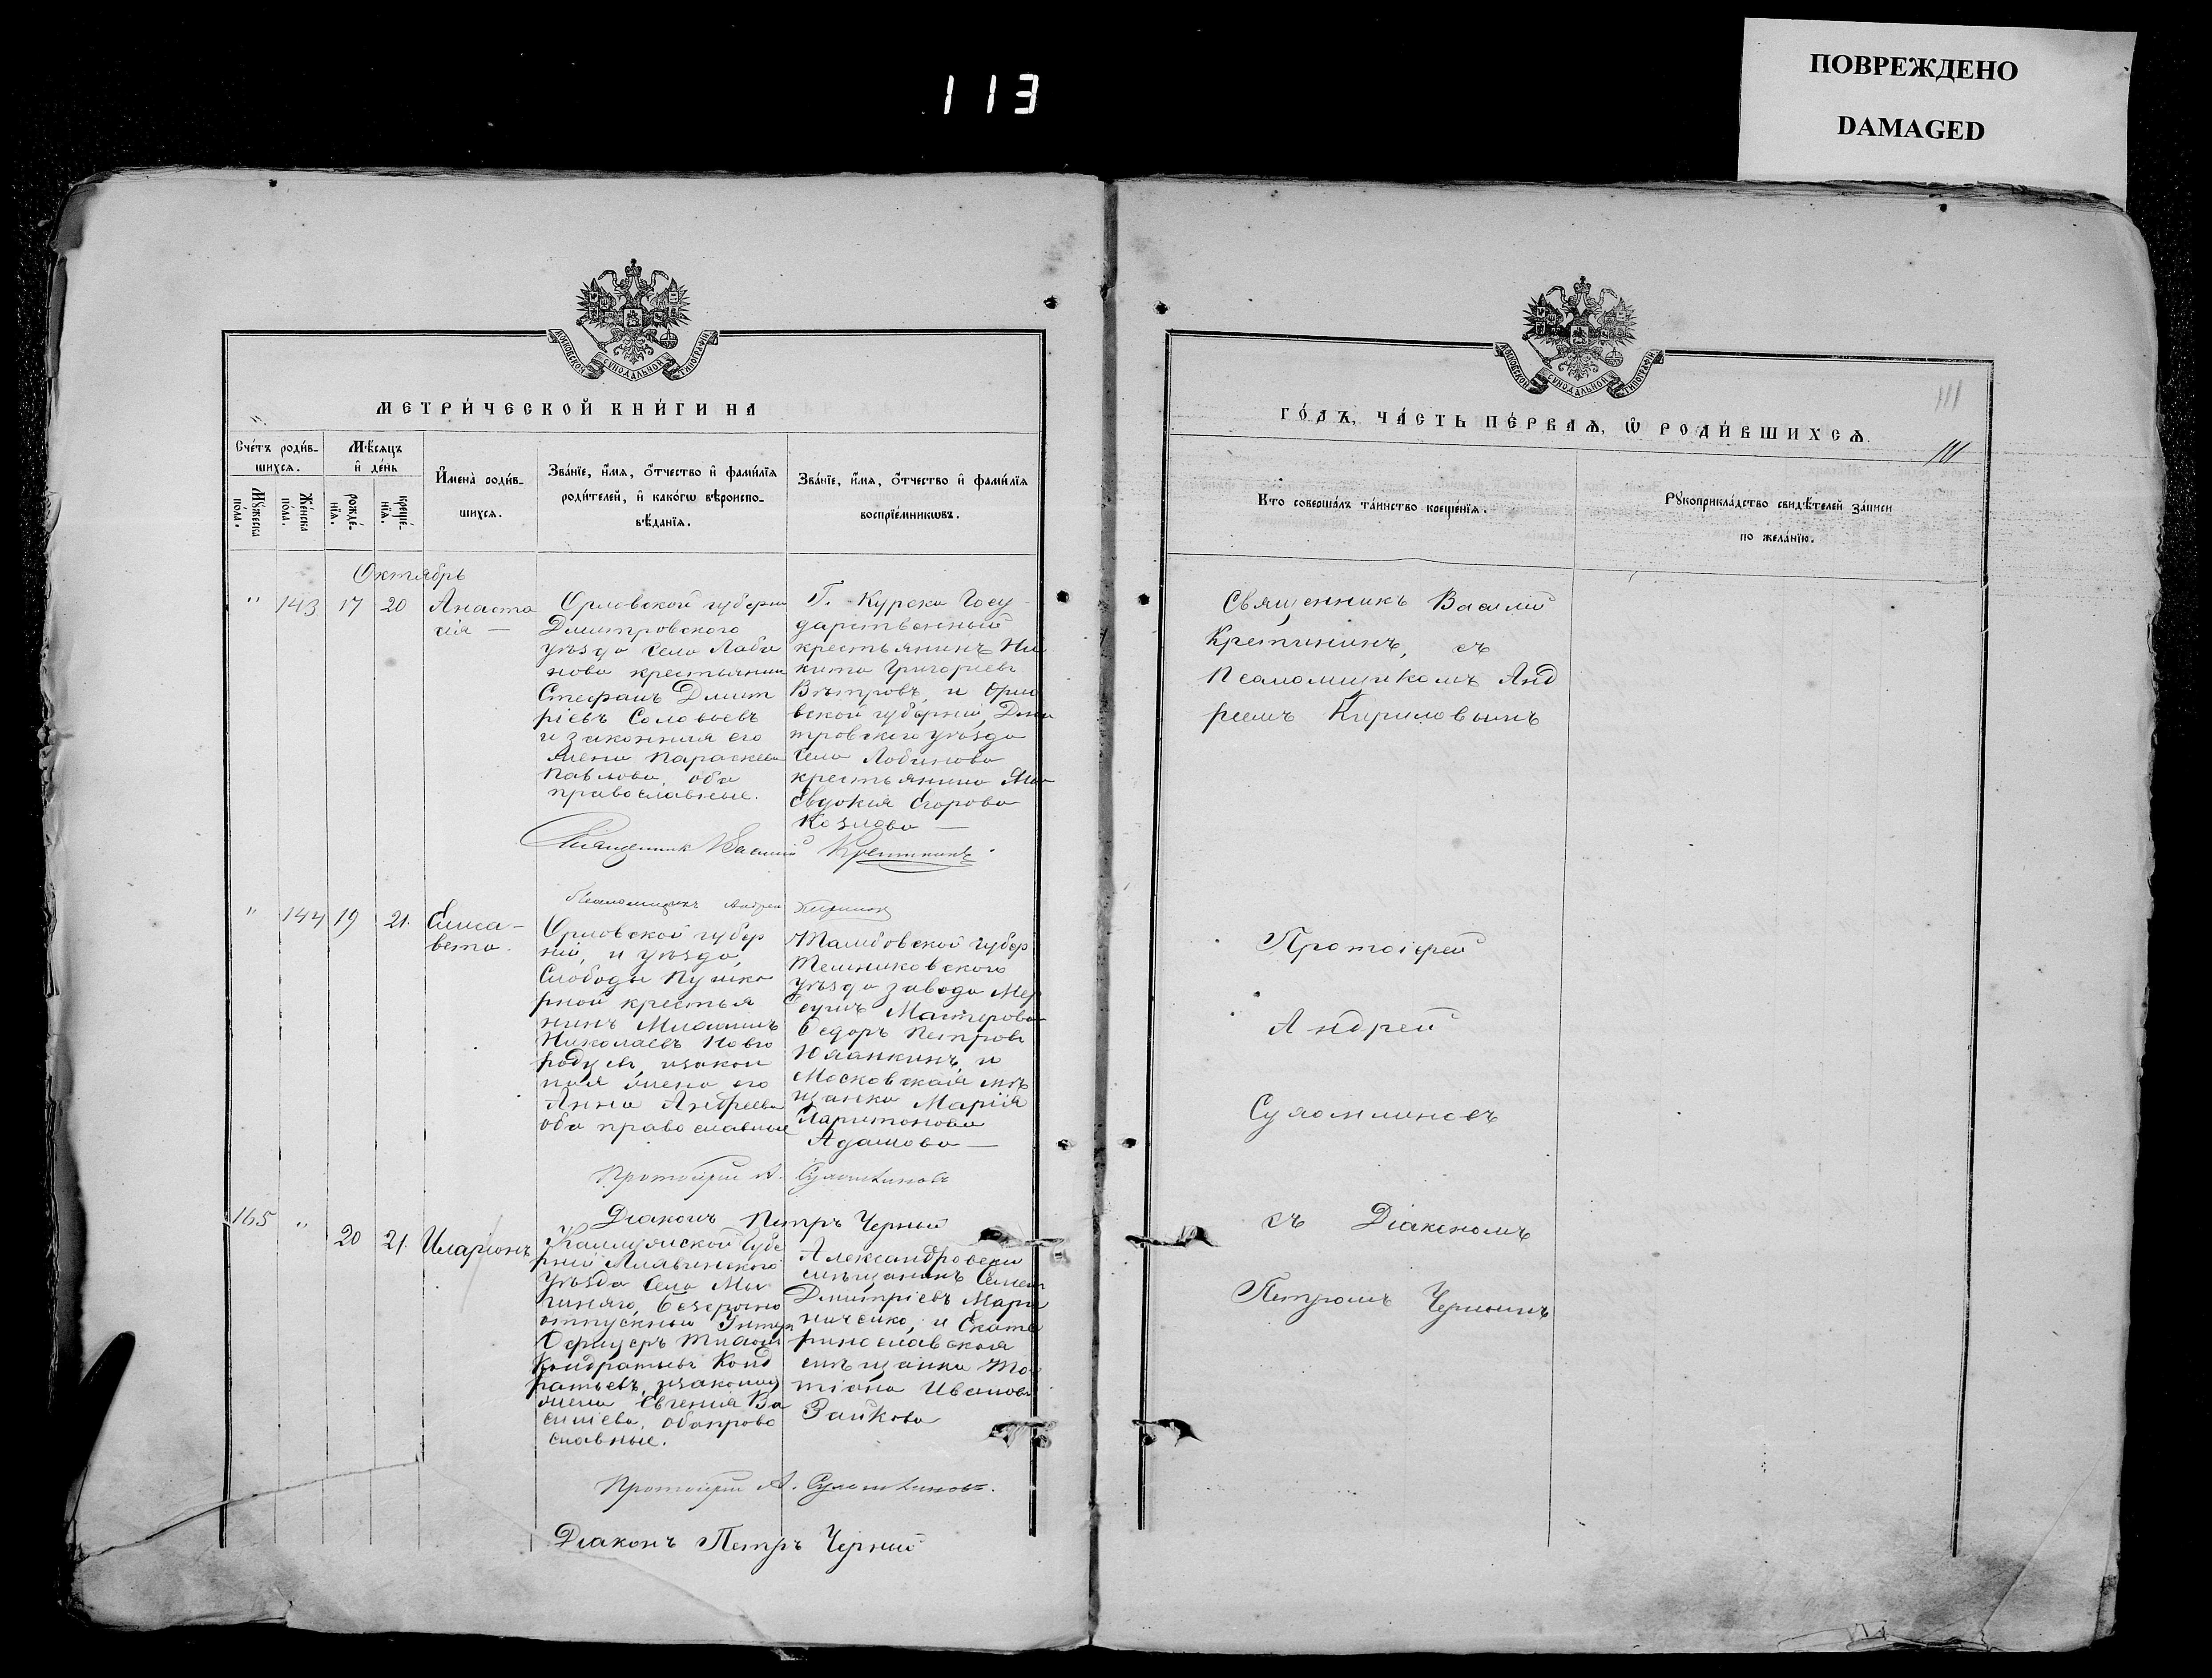 113
ПОВРЕЖДЕНО
DAMAGED
МОСКОВСКОЙ СѴНОДАЛЬНОЙ ТИПОГРАФІИ
МЕТРИ́ЧЕСКОЙ КНИ́ГИ НА
Сче́тъ роди́в-
шихсѧ.
Мѣ́сѧцъ
и҆ де́нь
Мꙋ́жеска по́ла.
Же́нска по́ла.
рожде́-
нїѧ.
креще́-
нїѧ.
И҆мена̀ роди́в-
шихсѧ.
Зва́нїе, и҆́мѧ, ѻ҆́тчество и҆ фами́лїѧ
роди́телей, и҆ како́гѡ вѣроиспо-
вѣ́данїѧ.
Зва́нїе, и҆́мѧ, ѻ҆́тчество и҆ фами́лїѧ
воспрїе́мникѡвъ.
Октябрь
" 143 17 20
Анаста
сія —
Орловской губерніи
Дмитровского
уѣзда села Лоби
нова крестьянин
Стефанъ Дмит
ріевъ Соловьевъ
и законная его
жена Параскева
Павлова, оба
православные.
Г. Курска Госу
дарственный
крестьянинъ Ни
кита Григорьевъ
Вѣтровъ, и Орло
вской губерніи, Дми
тровского уѣзда
села Лобинова
крестьянина
Евдокія Егорова
Козлова —
Священник Василій Кретининъ
Псаломщикъ Андрей Кирилов
" 144 19 21.
Елиса-
вета.
Орловской губер
ніи, и уѣзда,
Слободы Пушка
рной крестья
нинъ Михаилъ
Николаевъ Новго
родцевъ, и закон
ная жена его
Анна Андреева
оба православные
Тамбовской губер
Темниковского
уѣзда завода Мер
Мастерова
Ѳедоръ Петровъ
и
Московская мѣ
щанка Марія
Харитонова
Адамова —
Протоіерей А. Сулоткиновъ
Діаконъ Петръ Черный
165 " 20 21.
Иларіонъ
Губе
рніи
Уѣзда Села
Безсрочно
отпускный Унтер
Офицеръ
Кондратьевъ Конд
ратьевъ, и законная
жена Евгенія Ва
сильева, оба право
славные.
Александровскій
мѣщанинъ Семен
Дмитріевъ Мари
ниченко, и Екате
ринославская
мѣщанка Та
тіана Иванова
Зайкова
Протоіерей А. Сулоткиновъ.
Діаконъ Петръ Черный
МОСКОВСКОЙ СѴНОДАЛЬНОЙ ТИПОГРАФІИ
111
ГО́ДЪ, ЧА́СТЬ ПЕ́РВАѦ, Ѡ҆ РОДИ́ВШИХСѦ.
111
Кто̀ соверша́лъ та́инство креще́нїѧ.
Рꙋкоприкла́дство свидѣ́телей за́писи
по жела́нїю.
Священникъ Василій
Кретининъ, съ
Псаломщикомъ Анд
реемъ Кириловымъ
Протоіерей
Андрей
съ Діакономъ
Петромъ Чернымъ